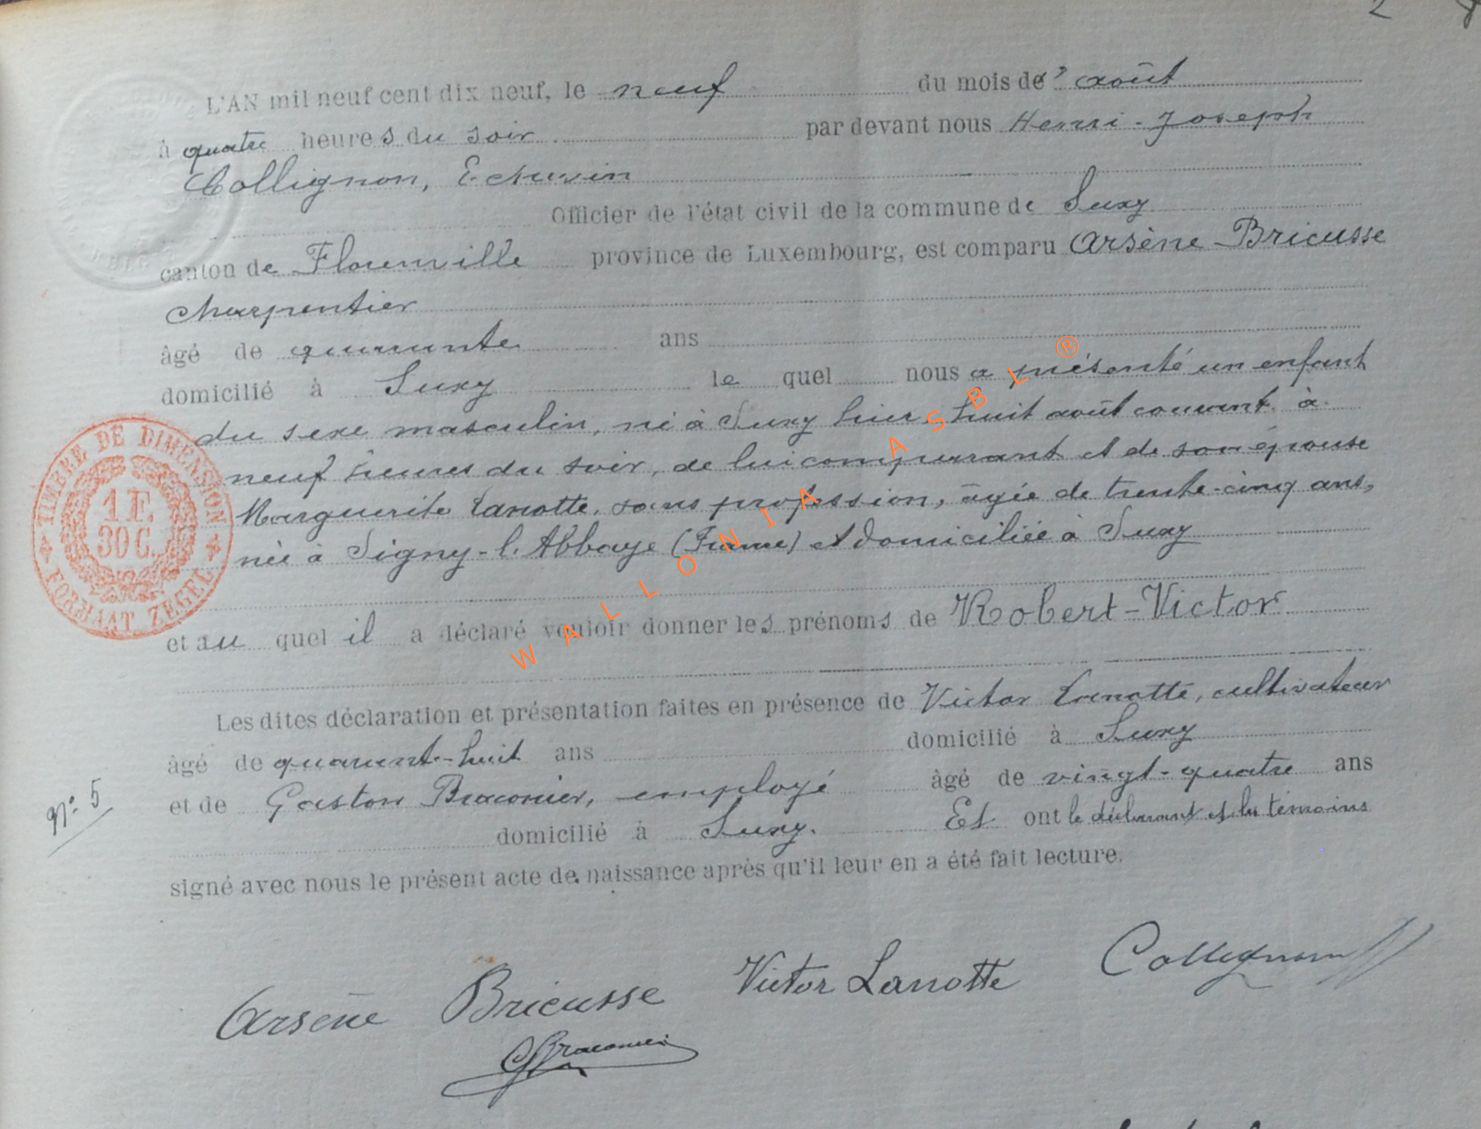 2
L'AN mil neuf cent dix neuf, le neuf du mois de août
à quatre heures du soir par devant nous Henri-Joseph
Collignon, Echevin
Officier de l'état civil de la commune de Suxy
canton de Florenville province de Luxembourg, est comparu Arsène Bricusse
charpentier
âgé de quarante ans
domicilié à Suxy le quel nous a présenté un enfant
du sexe masculin, né à Suxy hier huit août courant à
neuf heures du soir, de lui comparant et de son épouse
Marguerite Lanotte, sans profession, âgée de trente-cinq ans,
née à Signy-l'Abbaye (France) et domiciliée à Suxy
et au quel il a déclaré vouloir donner les prénoms de Robert-Victor
Les dites déclaration et présentation faites en présence de Victor Lanotte, cultivateur
âgé de quarante-huit ans domicilié à Suxy
et de Gaston Braconier, employé âgé de vingt-quatre ans
domicilié à Suxy. Et ont le déclarant et les témoins
signé avec nous le présent acte de naissance après qu'il leur en a été fait lecture.
N° 5
TIMBRE DE DIMENSION
1 F.
30 C.
FORMAAT ZEGEL
WALLONIA ASBL ®
Arsène Bricusse Victor Lanotte Collignon
GBraconier